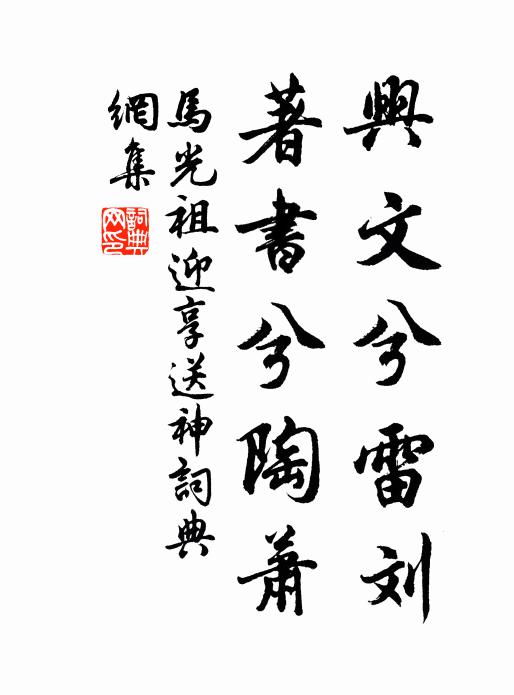 興文兮雷刘
著書兮陶蕭
馬光祖迎享送神詞典
網集
詞典
网印